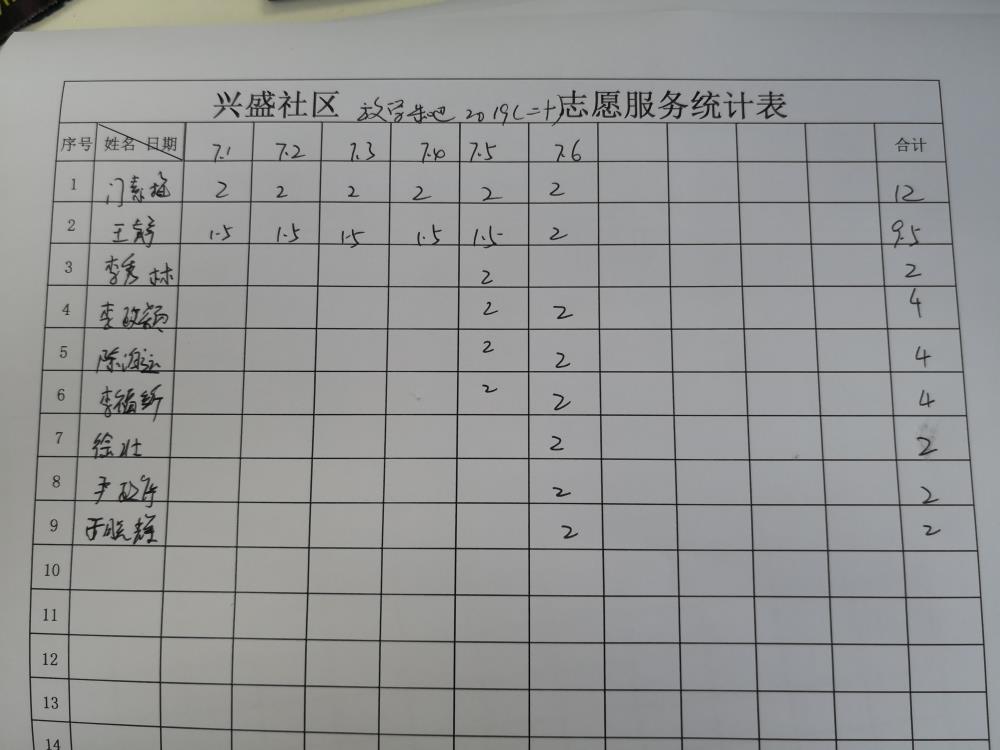 兴盛社区 放学来吧 2019(二十)志愿服务统计表
序号 姓名 日期 7.1 7.2 7.3 7.4 7.5 7.6 合计
1 门素梅 2 2 2 2 2 2 12
2 王 1.5 1.5 1.5 1.5 1.5 2 9.5
3 李秀林 2 2
4 李政颖 2 2 4
5 陈 2 2 4
6 李福新 2 2 4
7 徐壮 2 2
8 尹 2 2
9 于晓辉 2 2
10
11
12
13
14